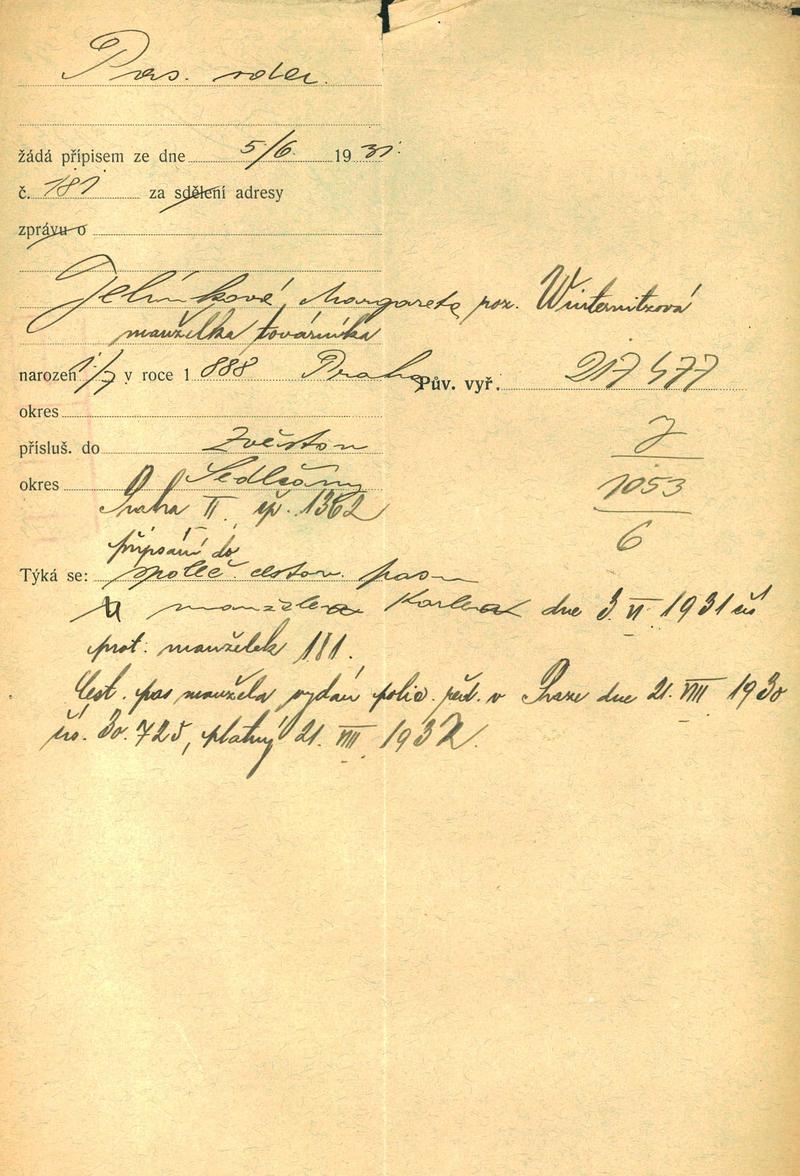 Pas. 
žádá přípisem ze dne 5/6 19 31.
č. 181 za sdělení adresy
zprávu o
Jelínkové Margareta roz. Winternitzová
manželka továrníka
narozen 1/7 v roce 1 888 Praha Pův. vyř. 217477
okres
7
přísluš. do Zvěstov
1053
okres Sedlčany
6
Praha II čp. 1362
připsání do
Týká se: společ. cestov. pasu
manžela Karla dne 3. VI 1931 čís
prot. manželek 181.
Cest. pas manžela vydán polic. řed. v Praze dne 21. VIII 1930
čís. 30.725, platný 21. VIII 1932.